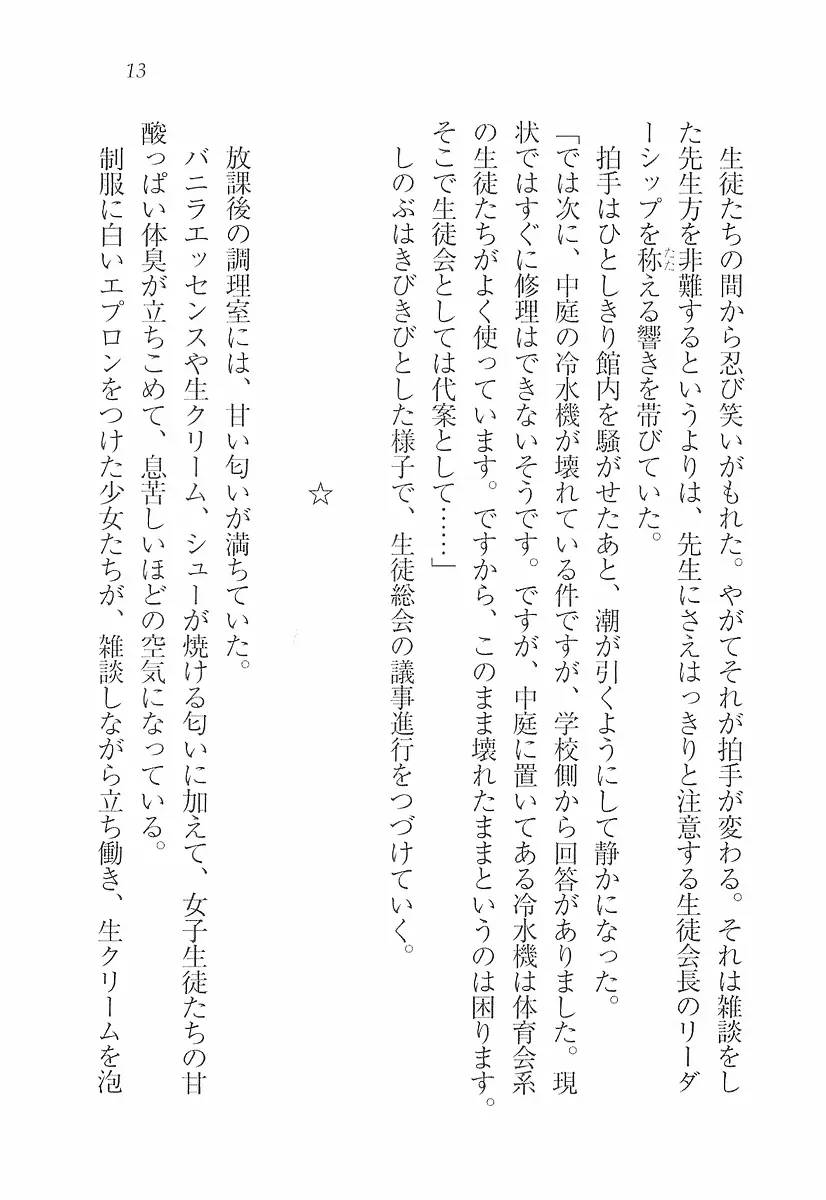 13
生徒たちの間から忍び笑いがもれた。やがてそれが拍手が変わる。それは雑談をし
た先生方を非難するというよりは、先生にさえはっきりと注意する生徒会長のリーダ
ーシップを称える響きを帯びていた。
たた
拍手はひとしきり館内を騒がせたあと、潮が引くようにして静かになった。
「では次に、中庭の冷水機が壊れている件ですが、学校側から回答がありました。現
状ではすぐに修理はできないそうです。ですが、中庭に置いてある冷水機は体育会系
の生徒たちがよく使っています。ですから、このまま壊れたままというのは困ります。
そこで生徒会としては代案として……」
しのぶはきびきびとした様子で、生徒総会の議事進行をつづけていく。
☆
放課後の調理室には、甘い匂いが満ちていた。
バニラエッセンスや生クリーム、シューが焼ける匂いに加えて、女子生徒たちの甘
酸っぱい体臭が立ちこめて、息苦しいほどの空気になっている。
制服に白いエプロンをつけた少女たちが、雑談しながら立ち働き、生クリームを泡